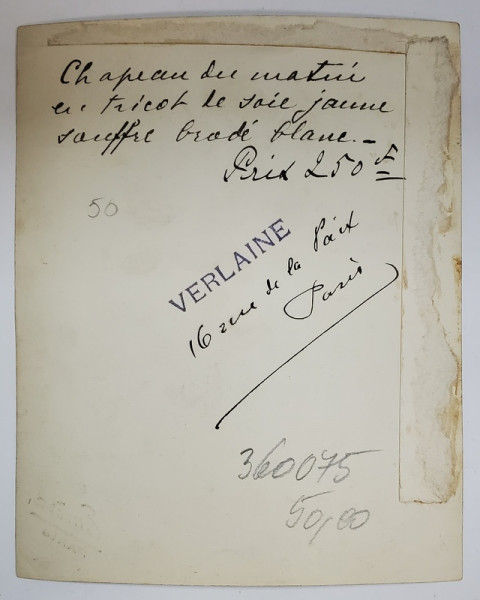 Chapeau du matin
en tricot de soie jaune
souffre brodé blanc. -
Prix 250 f
50
VERLAINE
16 rue de la Paix
Paris
360075
50,00